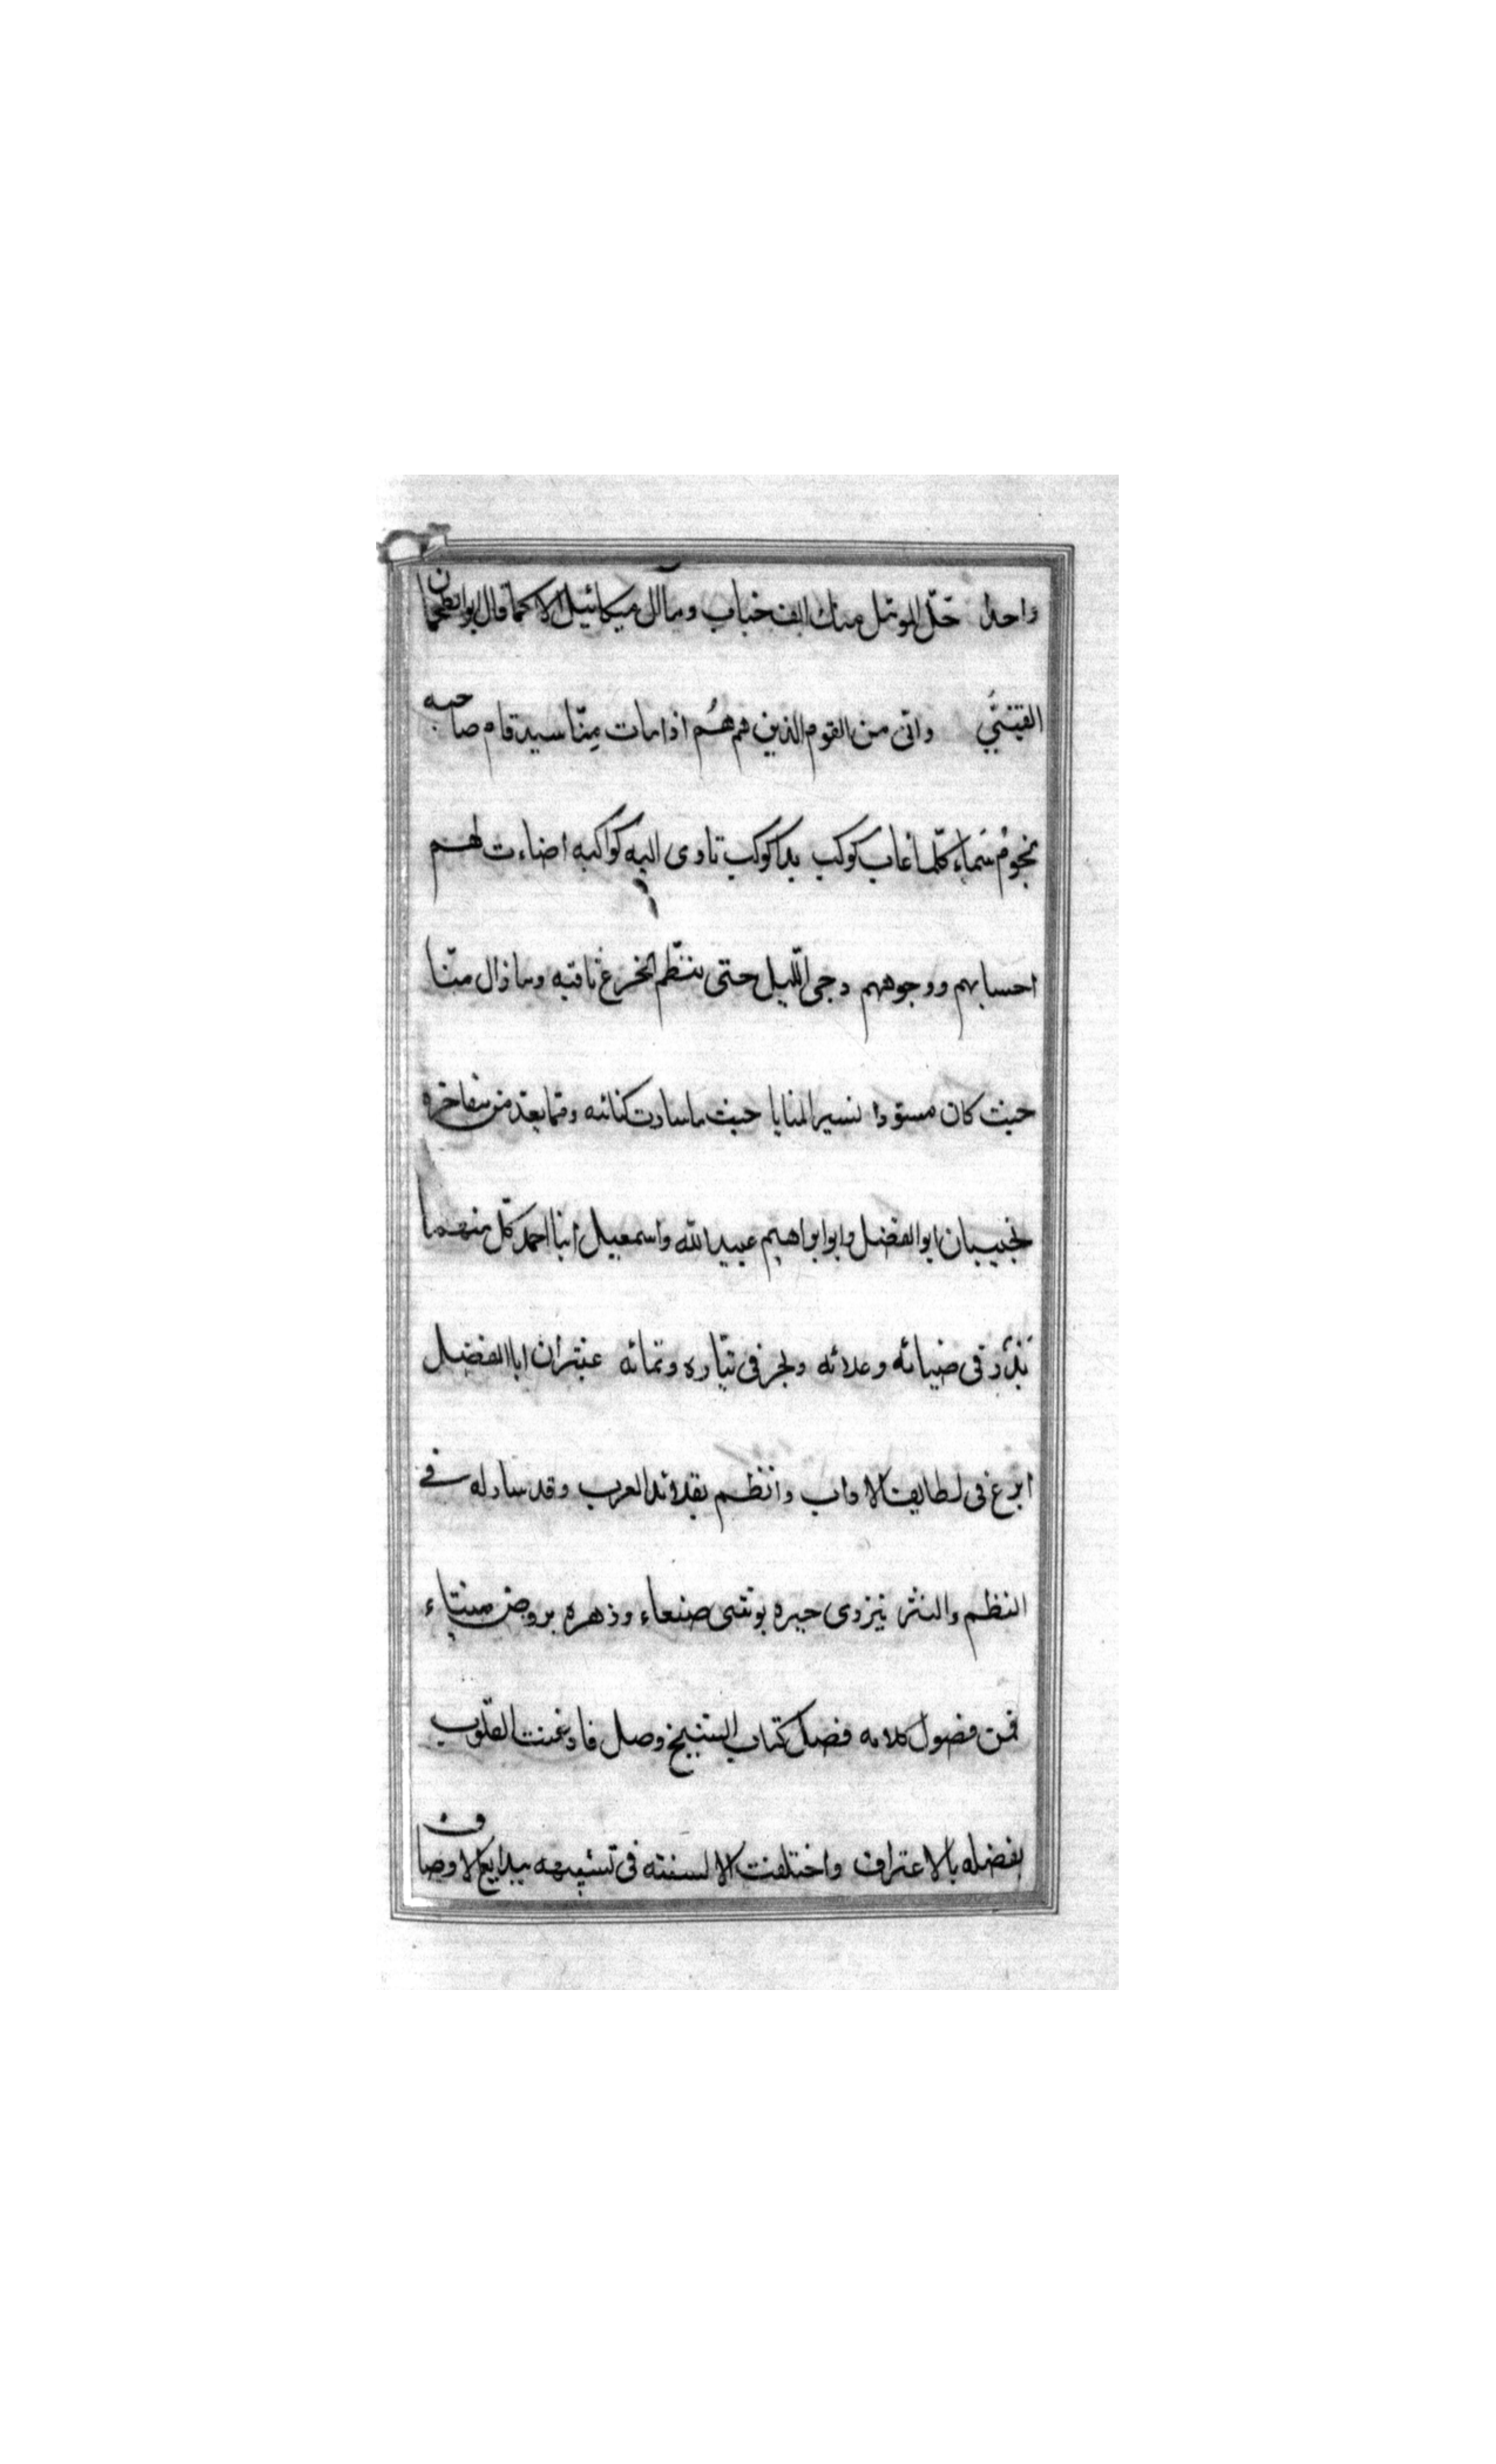 واحدا تخل الموتل منك الف خباب وما آل ميكائيل الا كما قال ابو الطمحان
القينيّ وانى من القوم الذين هم هُم اذا مات مِنّا سيد قام صاحبه
نجومُ سَماء كلّما غاب كوكب بدا كوكب تاوى اليه كواكبه اضاءت لهم
احسابهم ووجوههم دجى اللّيل حتى ننظّم الجزع ثاقبه وما زال منّا
حيث كان مسوّدا تسير المنايا حيث ما سارت كتائبه ومما يعدّ من مفاخره
نجيبان ابو الفضل وابو ابراهيم عبيد الله واسمعيل ابنا احمد كلّ منهما
بَدْرٌ فى ضيائه وعلائه وبحر فى تيّاره ونمائه غير ان ابا الفضل
ابرع فى لطايف الاداب وانظم بقلائد العرب وقد سار له فى
النظم والنثر يزرى حبره بوشى صنعاء وزهره بروض ميثاء
فمن فصول كلامه فصل كتاب الشيخ وصل فاذعنت القلوب
بفضله بالاعتراف واختلفت الالسنة فى تشبيهه ببدايع الاوصاف